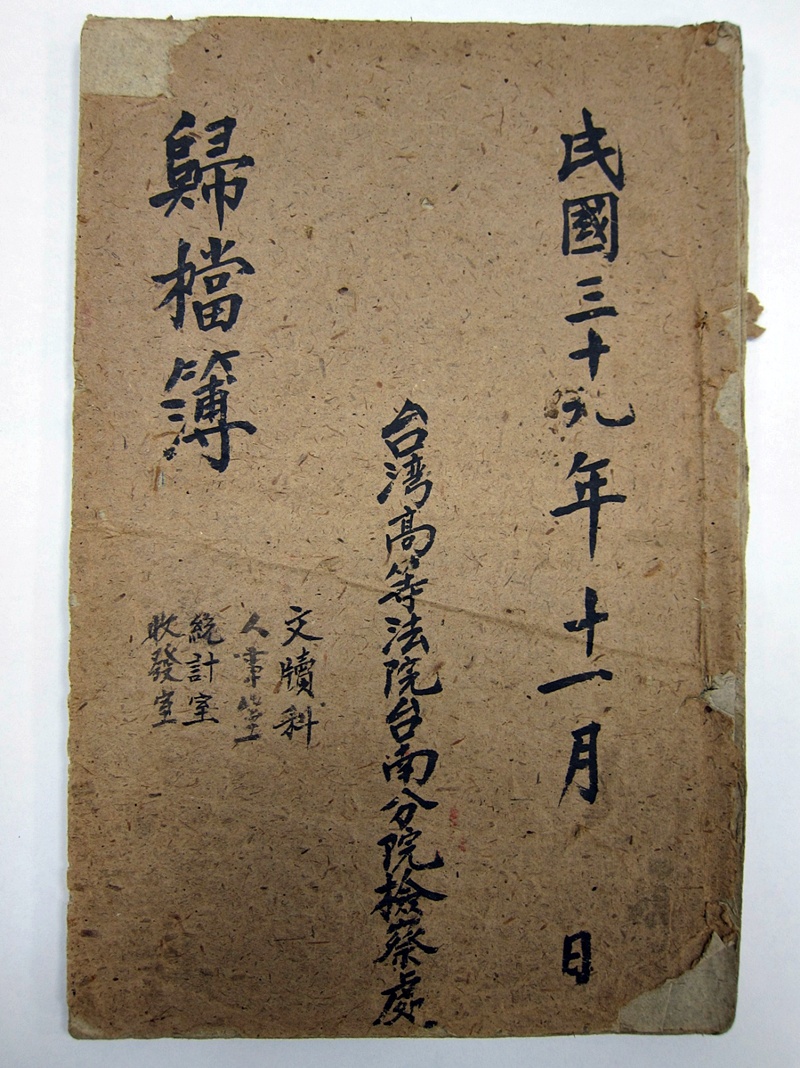 民國三十九年十一月 日
台湾高等法院台南分院檢察處
文牘科
人事室
統計室
收發室
歸檔簿